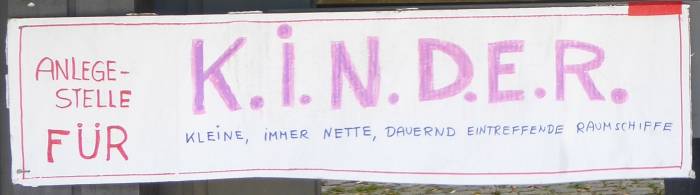 ANLEGE-
STELLE
FÜR
K.i.N.D.E.R.
KLEINE, iMMER NETTE, DAUERND EINTREFFENDE RAUMSCHIFFE